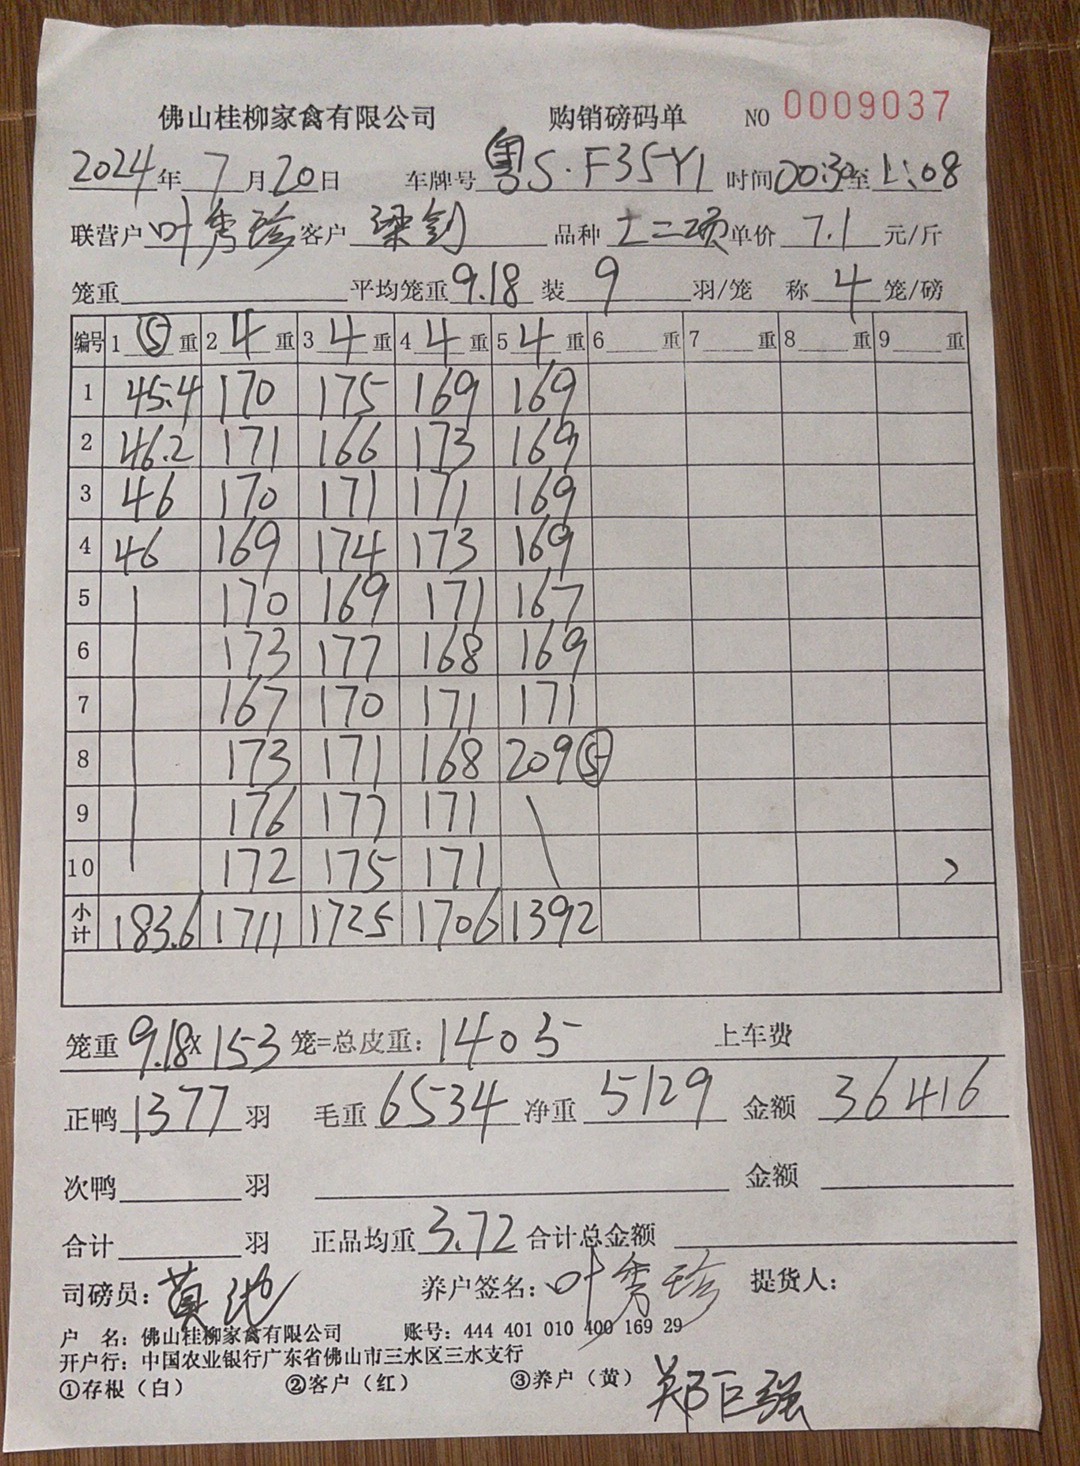 佛山桂柳家禽有限公司 购销磅码单 NO 0009037
2024年7月20日 车牌号粤S·F35Y1 时间00:30至1:08
联营户叶秀珍客户梁剑 品种十二项单价7.1元/斤
笼重 平均笼重9.18装9羽/笼 称4笼/磅
编号 1⑤重 2 4重 3 4重 4 4重 5 4重 6 重 7 重 8 重 9 重
1 45.4 170 175 169 169
2 46.2 171 166 173 169
3 46 170 171 171 169
4 46 169 174 173 169
5 170 169 171 167
6 173 177 168 169
7 167 170 171 171
8 173 171 168 209⑤
9 176 177 171
10 172 175 171
小计 183.6 1711 1725 1706 1392
笼重9.18×153笼=总皮重:1405 上车费
正鸭1377羽 毛重6534净重5129 金额36416
次鸭 羽 金额
合计 羽 正品均重3.72合计总金额
司磅员: 养户签名:叶秀珍 提货人:
户 名:佛山桂柳家禽有限公司 账号:444 401 010 400 169 29
开户行:中国农业银行广东省佛山市三水区三水支行
①存根(白) ②客户(红) ③养户(黄) 郑巨强